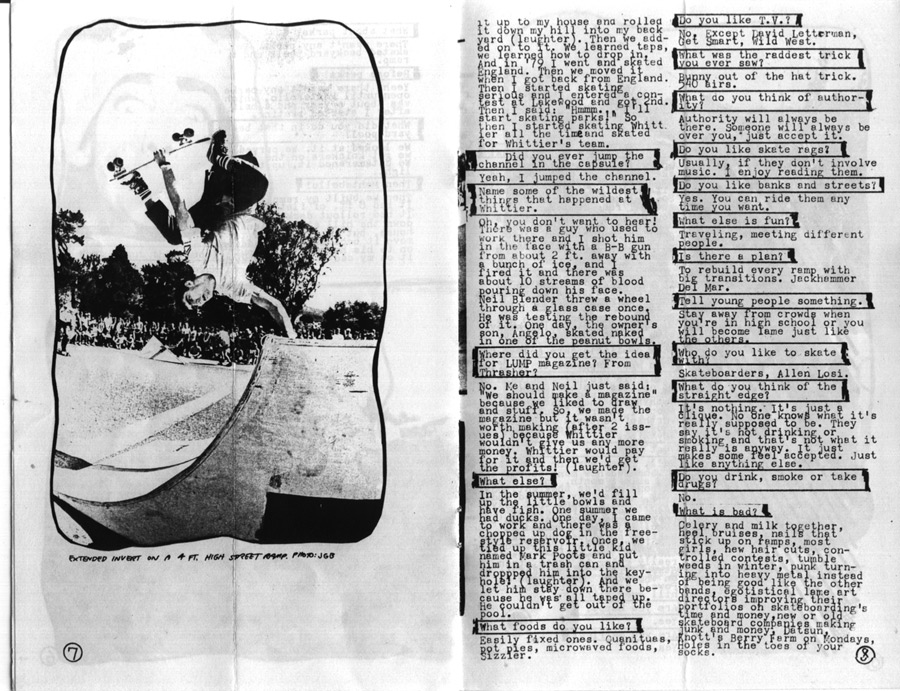 EXTENDED INVERT ON A 4 FT. HIGH STREET RAMP. PHOTO: JGB
7
it up to my house and rolled
it down my hill into my back
yard (laughter). Then we add-
ed on to it. We learned taps,
we learned how to drop in.
And in '79 I went and skated
England. Then we moved it
when I got back from England.
Then I started skating
serious and I entered a con-
test at Lakewood and got 2nd.
Then I said: "Hmmm... I'll
start skating parks!" So
then I started skating Whitt-
ier all the time and skated
for Whittier's team.
Did you ever jump the
channel in the capsule?
Yeah, I jumped the channel.
Name some of the wildest
things that happened at
Whittier.
Oh, you don't want to hear!
There was a guy who used to
work there and I shot him
in the face with a B-B gun
from about 2 ft. away with
a bunch of ice, and I
fired it and there was
about 10 streams of blood
pouring down his face.
Neil Blender threw a wheel
through a glass case once.
He was testing the rebound
of it. One day, the owner's
son, Angelo, skated naked
in one of the peanut bowls.
Where did you get the idea
for LUMP magazine? From
Thrasher?
No. Me and Neil just said;
"We should make a magazine"
because we liked to draw
and stuff. So, we made the
magazine but it wasn't
worth making (after 2 iss-
ues) because Whittier
wouldn't give us any more
money. Whittier would pay
for it and then we'd get
the profits! (laughter).
What else?
In the summer, we'd fill
up the little bowls and
have fish. One summer we
had ducks. One day, I came
to work and there was a
chopped up dog in the free-
style reservoir. Once, we
tied up this little kid
named Mark Poots and put
him in a trash can and
droppped him into the key-
hole! (laughter). And we
let him stay down there be-
cause he was all taped up.
He couldn't get out of the
pool.
What foods do you like?
Easily fixed ones. Quanituas,
pot pies, microwaved foods,
Sizzler.
Do you like T.V.?
No. Except David Letterman,
Get Smart, Wild West.
What was the raddest trick
you ever saw?
Bunny out of the hat trick.
540 airs.
What do you think of author-
ity?
Authority will always be
there. Someone will always be
over you, just accept it.
Do you like skate rags?
Usually, if they don't involve
music. I enjoy reading them.
Do you like banks and streets?
Yes. You can ride them any
time you want.
What else is fun?
Traveling, meeting different
people.
Is there a plan?
To rebuild every ramp with
big transitions. Jackhammer
Del Mar.
Tell young people something.
Stay away from crowds when
you're in high school or you
will become lame just like
the others.
Who do you like to skate
with?
Skateboarders, Allen Losi.
What do you think of the
straight edge?
It's nothing. It's just a
clique. No one knows what it's
really supposed to be. They
say it's not drinking or
smoking and that's not what it
really is anyway. It just
makes some feel accepted. Just
like anything else.
Do you drink, smoke or take
drugs?
No.
What is bad?
Celery and milk together,
heel bruises, nails that
stick up on ramps, most
girls, new hair cuts, con-
trolled contests, tumble
weeds in winter, punk turn-
ing into heavy metal instead
of being good like the other
bands, egotistical lame art
directors improving their
portfolios on skateboarding's
time and money, new or old
skateboard companies making
junk and money, Datsun,
Knott's Berry Farm on Mondays,
Holes in the toes of your
socks.
8